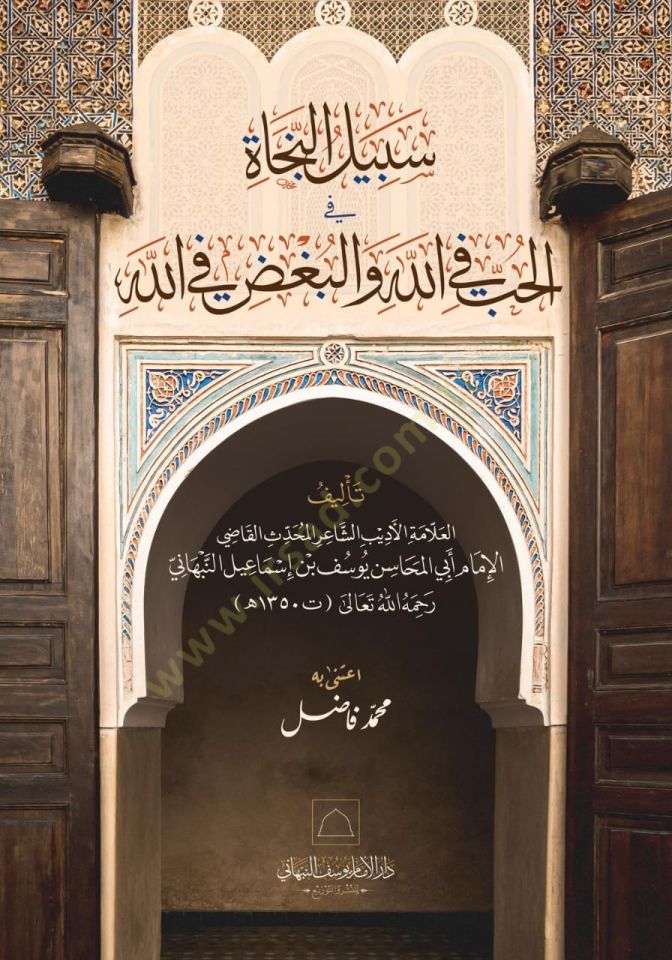 سَبِيلُ النَّجَاةِ
فِي
الحُبِّ فِي اللهِ وَالبُغْضِ فِي اللهِ
تَأْلِيفُ
العَلَّامَةِ الأَدِيبِ الشَّاعِرِ المُحَدِّثِ القَاضِي
الإِمَامِ أَبِي المَحَاسِنِ يُوسُفَ بن إِسْمَاعِيلَ النَّبْهَانِيّ
رَحِمَهُ اللهُ تَعَالَى (ت ١٣٥٠هـ)
اعتنى به
محمّد فاضل
دَارُ الإِمَامِ يُوسُفَ النَّبْهَانِي
لِلنَّشْرِ وَالتَّوْزِيْعِ